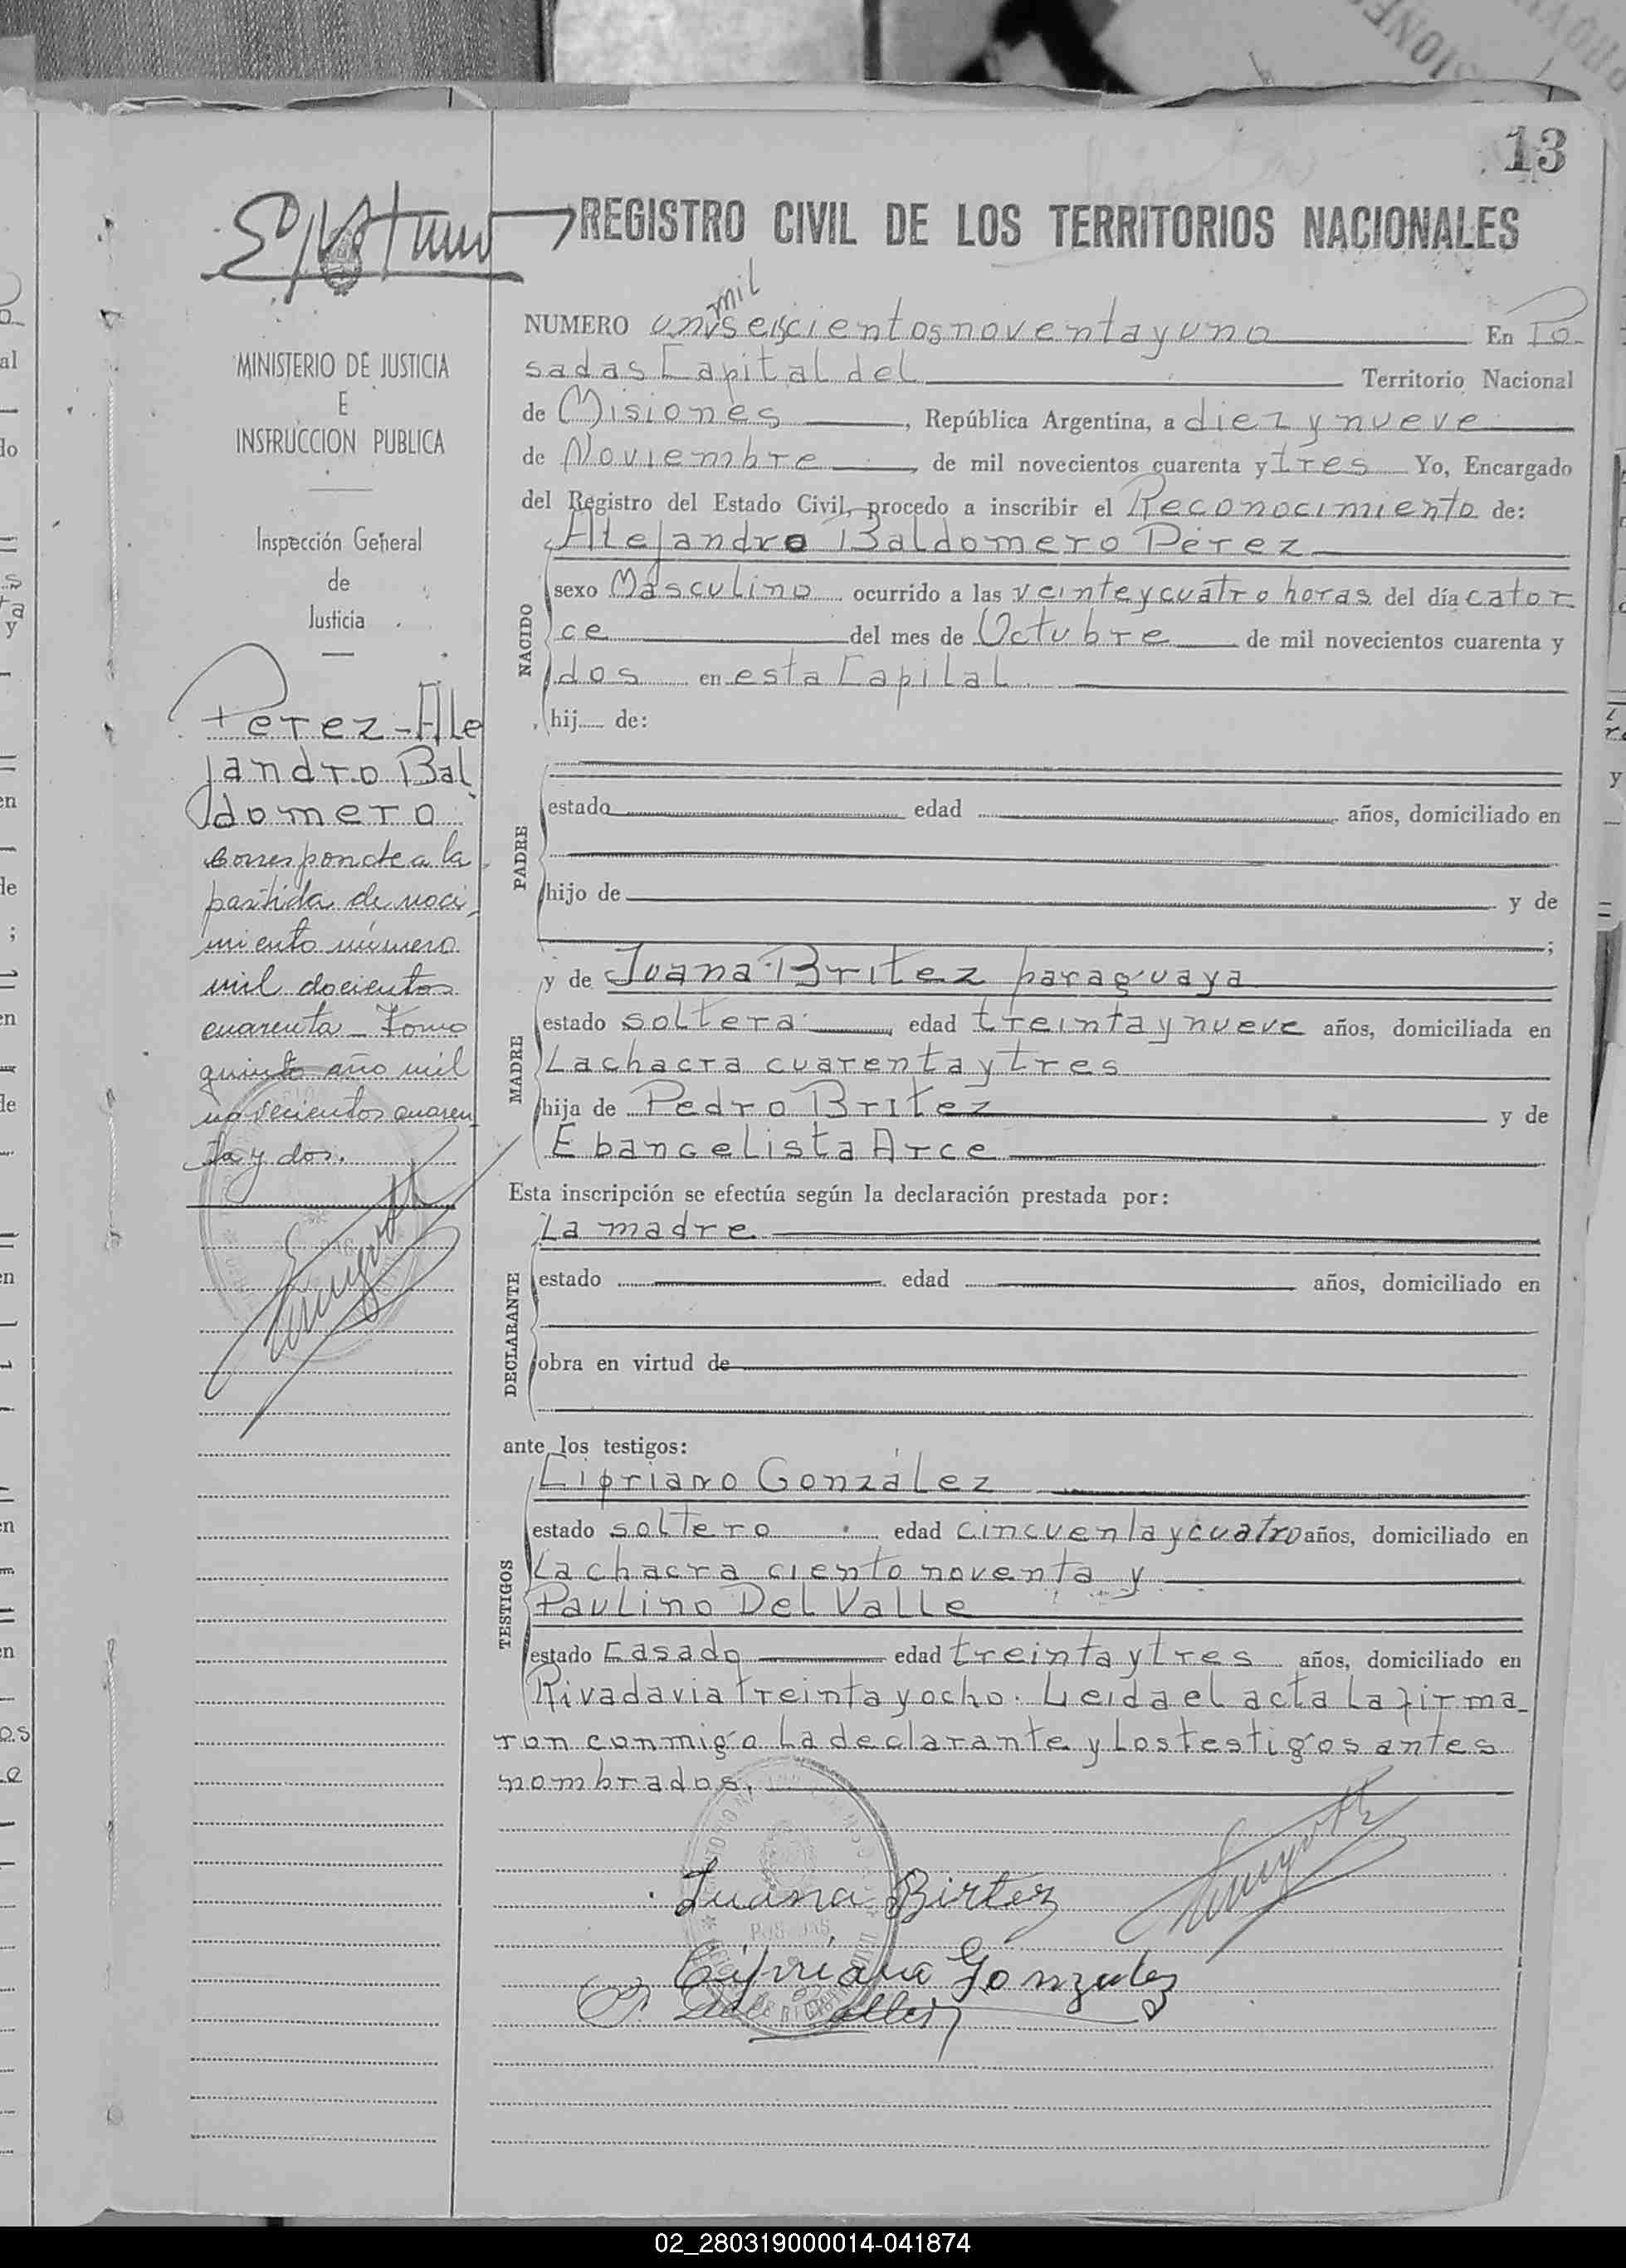 13
REGISTRO CIVIL DE LOS TERRITORIOS NACIONALES
MINISTERIO DE JUSTICIA
E
INSTRUCCION PUBLICA
Inspección General
de
Justicia
Perez-Ale
jandro Bal
domero
corresponde a la
partida de naci
miento número
mil docientos
cuarenta - Tomo
quinto año mil
novecientos cuaren
ta y dos.
mil
NUMERO un seiscientos noventa y uno En Po
sadas Capital del Territorio Nacional
de Misiones, República Argentina, a diez y nueve
de Noviembre, de mil novecientos cuarenta y tres Yo, Encargado
del Registro del Estado Civil, procedo a inscribir el Reconocimiento de:
Alejandro Baldomero Pérez
NACIDO
sexo Masculino ocurrido a las veinte y cuatro horas del día cator
ce del mes de Octubre de mil novecientos cuarenta y
dos en esta Capital
hij de:
PADRE
estado edad años, domiciliado en
hijo de y de
;
MADRE
y de Juana Britez paraguaya
estado soltera edad treinta y nueve años, domiciliada en
La chacra cuarenta y tres
hija de Pedro Britez y de
Ebangelista Arce
Esta inscripción se efectúa según la declaración prestada por:
La madre
DECLARANTE
estado edad años, domiciliado en
obra en virtud de
ante los testigos:
TESTIGOS
Cipriano González
estado soltero edad cincuenta y cuatro años, domiciliado en
La chacra ciento noventa y
Paulino Del Valle
estado Casado edad treinta y tres años, domiciliado en
Rivadavia treinta y ocho. Leida el acta la firma
ron conmigo la declarante y los testigos antes
nombrados.
Juana Birtez
POSADAS
Cipriano Gonzalez
02_280319000014-041874